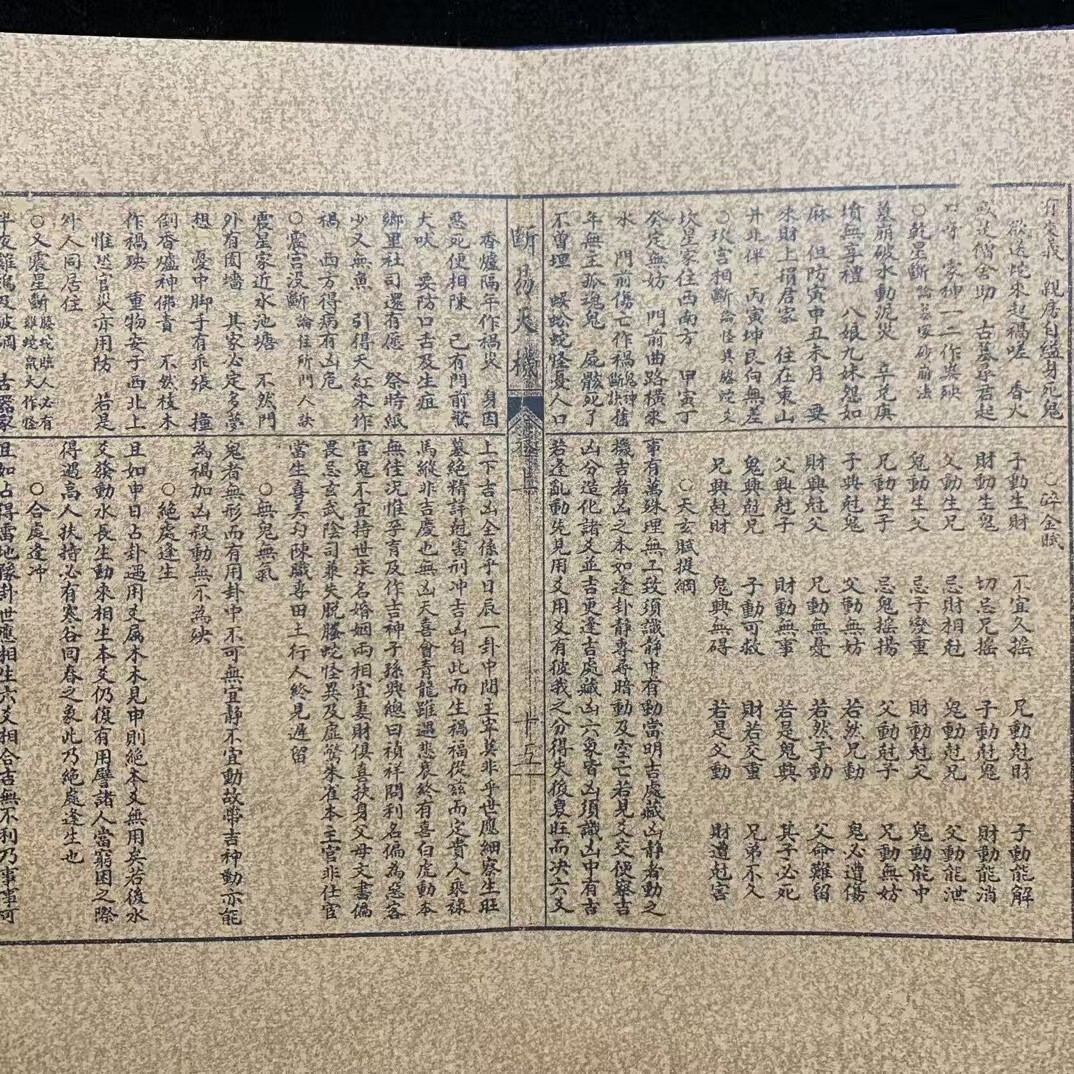 親房自縊身死鬼
香火
古墓尋君起
家神一二作興殃
○乾星斷 論墓家砂崩法
墓崩破水動泥災 辛兌庚
墳無享禮 八娘九妹怨如
麻 但防寅申丑未月 要
來財上損居家 住在東山
井北伴 丙寅坤艮向無差
○坎宮相斷 論怪異騰蛇爻
坎星家住西南方 甲寅丁
癸定無妨 門前曲路橫來
水 門前傷亡作禍 鬼神斷訣 舊
年無主孤魂鬼 屍骸死了
不曾埋 蜈蚣蛇怪憂人口
○碎金賦
子動生財 不宜父搖 兄動尅財 子動能解
財動生鬼 切忌兄搖 子動尅鬼 財動能消
父動生兄 忌財相尅 鬼動尅兄 父動能泄
鬼動生父 忌子變重 財動尅父 鬼動能中
兄動生子 忌鬼搖揚 父動尅子 兄動無妨
子興尅鬼 父動無妨 若然兄動 鬼必遭傷
財興尅父 兄動無憂 若然子動 父命難留
父興尅子 財動無事 若是鬼興 其子必死
鬼興尅兄 子動可救 財若交重 兄弟不久
兄興尅財 鬼興無碍 若是父動 財遭尅害
○天玄賦提綱
事有萬殊理無二致須識靜中有動當明吉處藏凶靜者動之
機吉者凶之本如逢卦靜專尋暗動及空亡若見爻交便察吉
凶分造化諸爻並吉更逢吉處藏凶六象皆凶須識凶中有吉
若逢亂動先見用爻用爻有彼我之分得失後衰旺而決六爻
斷易天機
廿五
香爐隔年作禍災 身因
惡死便相陳 已有門前驚
大吠 要防口舌及生疽
鄉里社司還有愿 祭時紙
少又無魚 引得天紅來作
禍 西方得病有凶危
○震宮沒斷 論住所門人訣
震星家近水池塘 不然門
外有園墻 其家必定多夢
想 憂中脚手有乖張 撞
倒香爐神佛責 不然枝木
作禍殃 重物安于西北上
惟恐官災亦用防 若是
外人同居住
○又震星斷 騰蛇臨人必有雞蛇氣大作怪
半夜雞鳴及破碉 古器家
上下吉凶全係乎日辰一卦中間主宰莫非乎世應細察生旺
墓絕精詳尅害刑冲吉凶自此而生禍福從茲而定貴人乘祿
馬縱非吉慶也無凶天喜會青龍雖遇悲哀終有喜白虎動本
無佳況惟孕育及作吉神子孫興總曰禎祥問利名偏為惡客
官鬼不宜持世求名婚姻兩相宜妻財俱喜扶身父母文書偏
畏忌玄武陰司兼失脫騰蛇怪異及虛驚朱雀本主官非仕官
當生喜美勾陳職專田土行人終見遲留
○無鬼無氣
鬼者無形而有用卦中不可無宜靜不宜動故帶吉神動亦能
為禍加凶殺動無不為殃
○絕處逢生
且如申日占卦遇用爻属木木見申則絕本爻無用矣若後水
爻發動水長生動來相生本爻仍復有用譬諸人當窮困之際
得遇高人扶持必有寒谷回春之象此乃絕處逢生也
○合處逢冲
且如占得雷地豫卦世應相生六爻相合吉無不利乃事事可